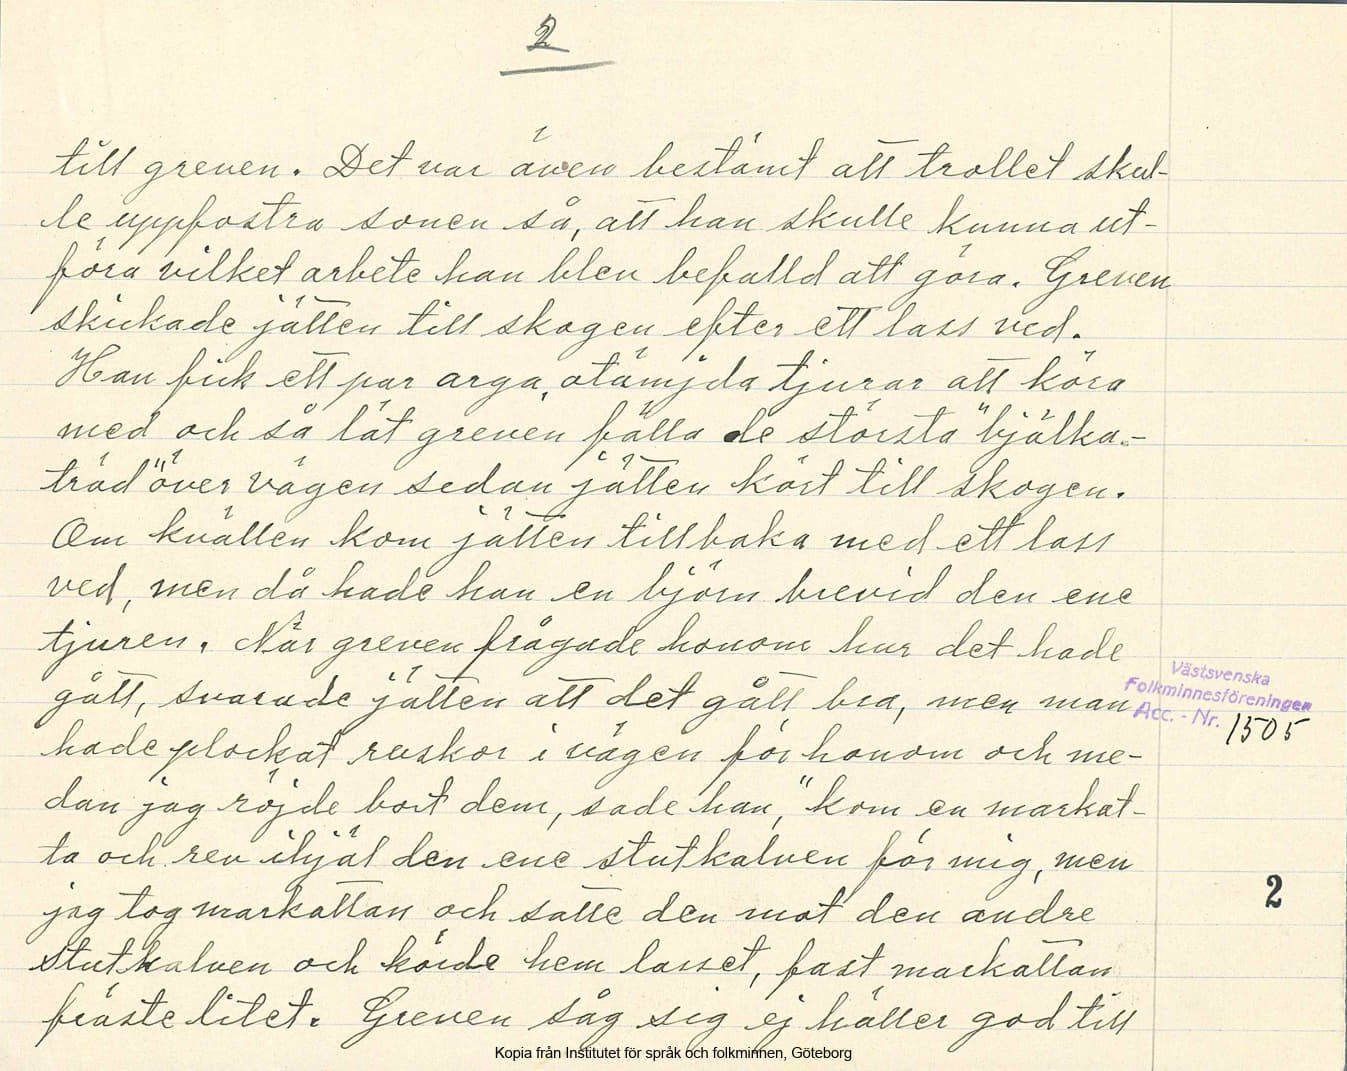 2
till greven. Det var även bestämt att trollet skul-
le uppfostra sonen så, att han skulle kunna ut-
föra vilket arbete han blev befalld att göra. Greven
skickade jätten till skogen efter ett lass ved.
Han fick ett par arga, otämjda tjurar att köra
med och så lät greven fälla de största "bjälka-
träd" över vägen sedan jätten kört till skogen.
Om kvällen kom jätten tillbaka med ett lass
ved, men då hade han en björn brevid den ene
tjuren. När greven frågade honom hur det hade
gått, svarade jätten att det gått bra, men man
hade plockat ruskor i vägen för honom och me-
dan jag röjde bort dem, sade han, "kom en markat-
ta och rev ihjäl den ene stutkalven för mig, men
jag tog markattan och satte den mot den andre
stutkalven och körde hem lasset, fast markattan
fräste litet. Greven såg sig ej häller god till
Västsvenska
Folkminnesföreningen
Acc. - Nr. 1505
2
Kopia från Institutet för språk och folkminnen, Göteborg